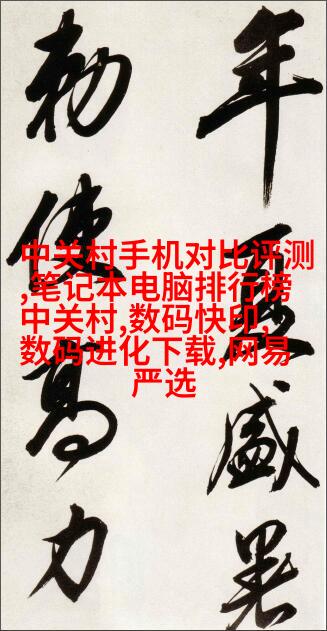 年夏盛暑
勅使高力
中关村手机对比评测
,笔记本电脑排行榜
中关村,数码快印,
数码进化下载,网易
严选